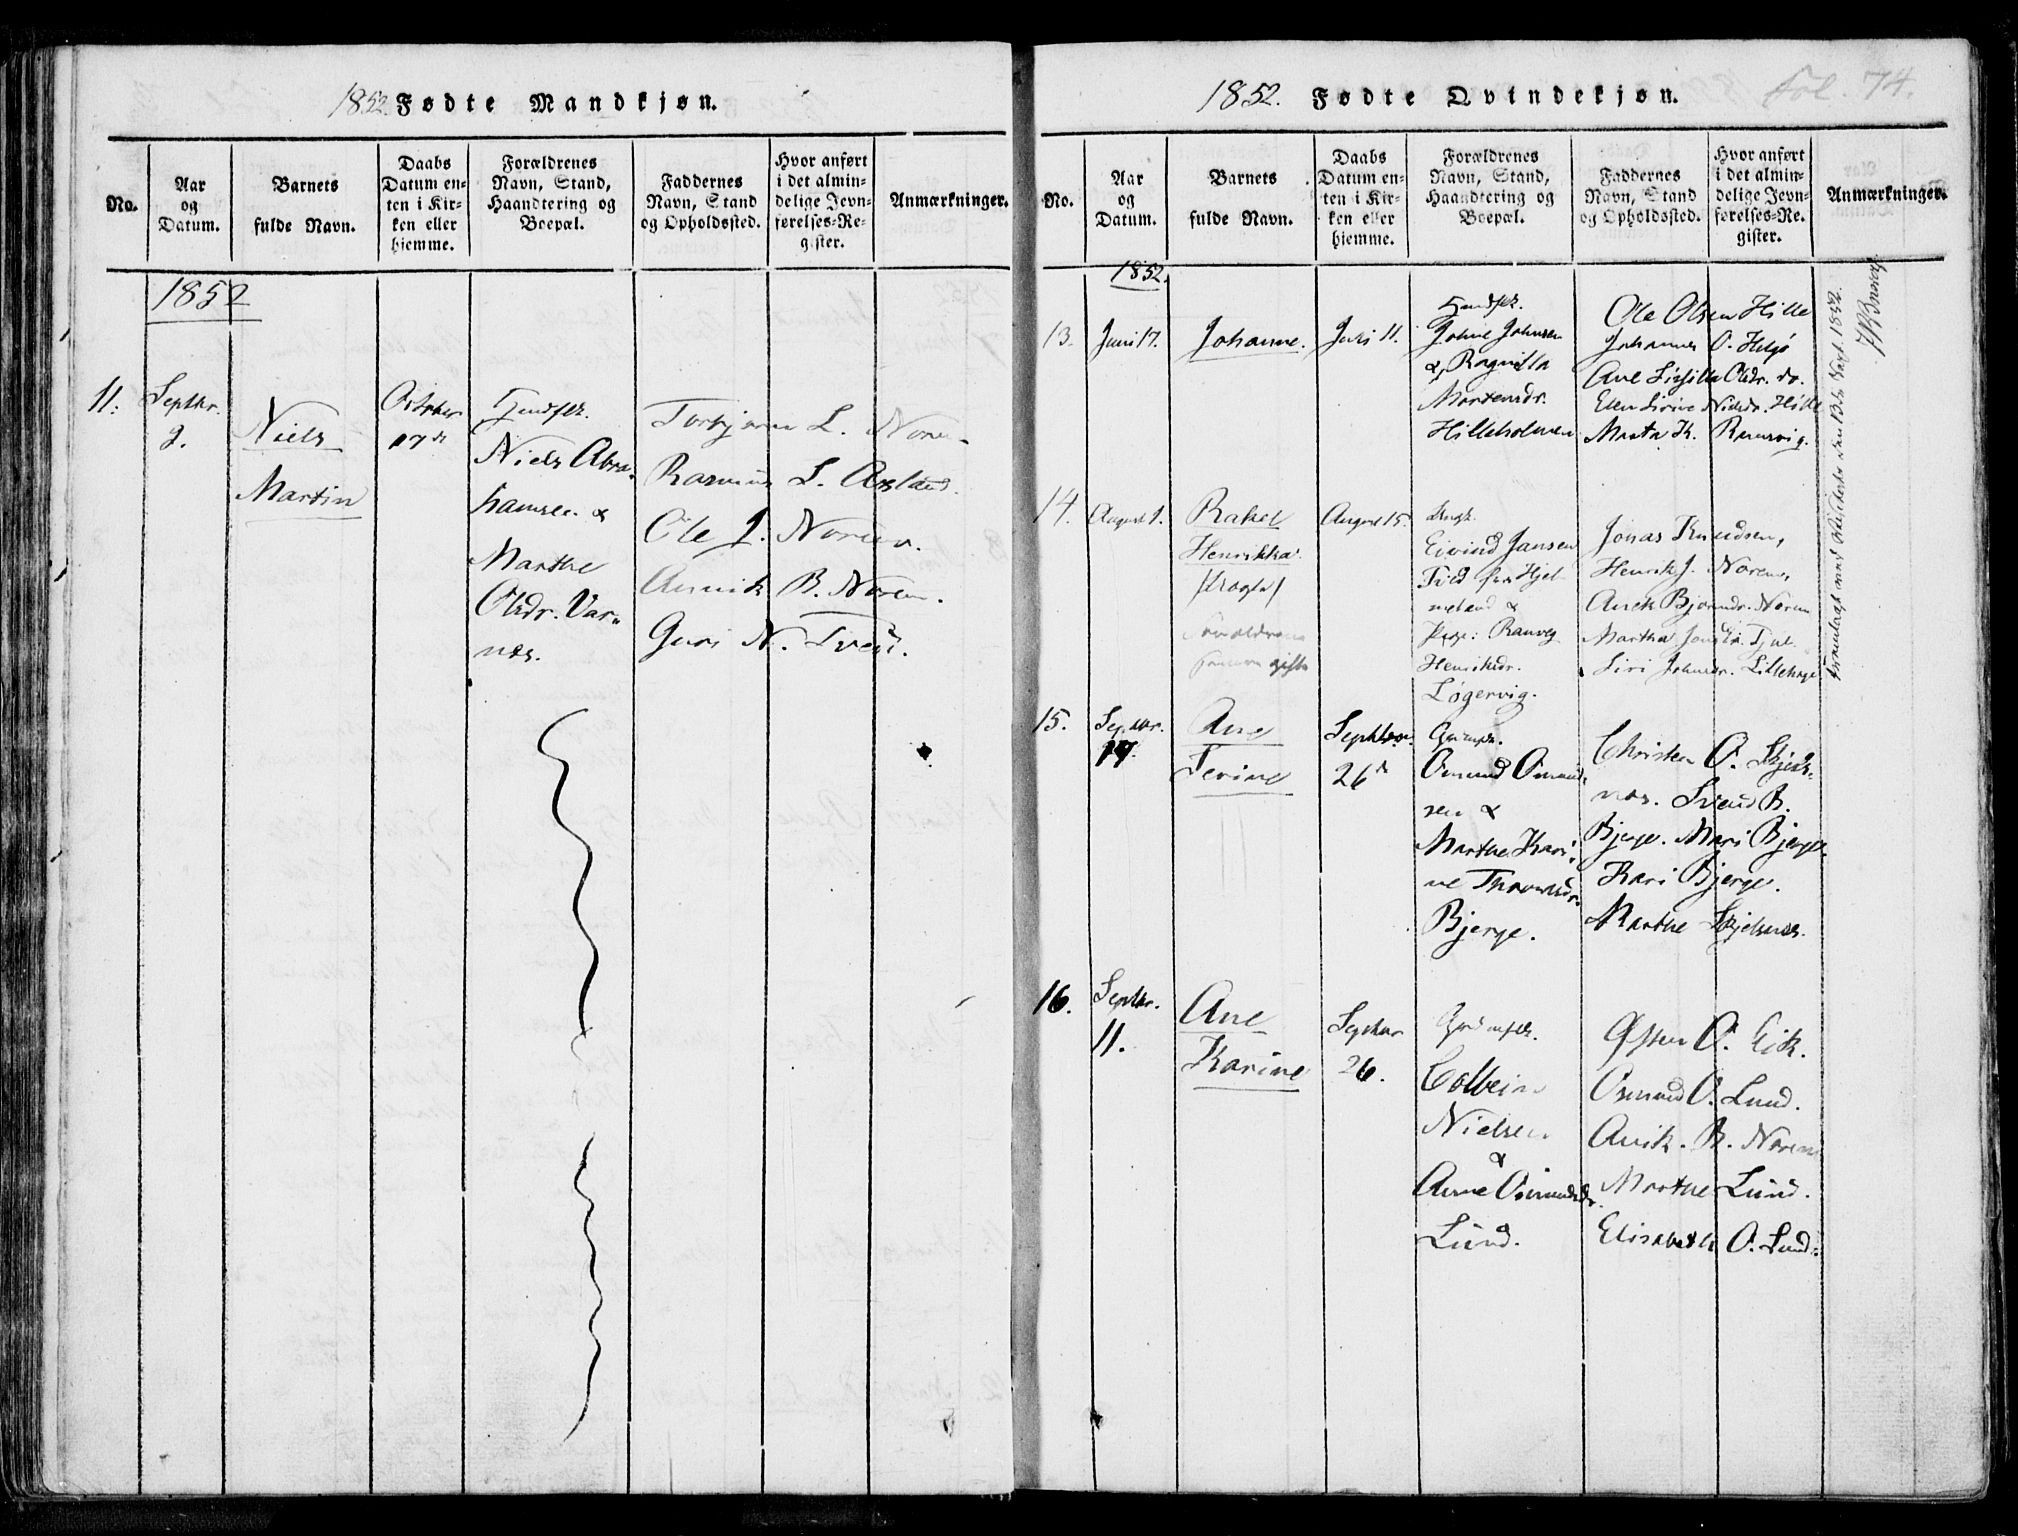 1852 Fødte Mandkjøn.
No.
Aar
og
Datum.
Barnets
fulde Navn.
Daabs
Datum en-
ten i Kir-
ken eller
hjemme.
Forældrenes
Navn, Stand,
Haandtering og
Boepæl.
Faddernes
Navn, Stand
og Opholdssted.
Hvor anført
i det almin-
delige Jevn-
førelses-Re-
gister.
Anmærkninger.
1852
11.
Septbr.
Niels
Martin
October
17de
Niels Abra-
hamsen &
Marthe
Olsdr. Var-
næs.
Torbjørn L. Norem
Rasmus L. Arsland.
Ole J. Norem.
Annik B. Norem.
Guri N. Tveit.
1852. Fødte Qvindekjøn.
Fol. 74.
No.
Aar
og
Datum.
Barnets
fulde Navn.
Daabs
Datum en-
ten i Kir-
ken eller
hjemme.
Forældrenes
Navn, Stand,
Haandtering og
Boepæl.
Faddernes
Navn, Stand
og Opholdssted.
Hvor anført
i det almin-
delige Jevn-
førelses-Re-
gister.
Anmærkninger.
1852.
13.
Juni 17.
Johanne.
Juli 11.
Johnsen
& Ragnilla
Mortensdr.
Hilleholmen
Ole Olsen Hille
Johannes O. Helgø
Ane Olsdr. do.
Ellen Sirine Nielsdr. Hille
Marta K. Ramsvig.
14.
August 1.
Rakel
Henrikka
August 15.
Eivind Jansen
Tved fra Hjel-
meland &
Pige: Ranveg
Henriksdr.
Løgervig.
Jonas Knudsen,
Henrik J. Norem,
Anek Bjørnsdr. Norem
Martha
Siri Johnsdr.
15.
Septbr.
17.
Ane
Serine
Septbr.
26de
Osmund Osmund-
sen &
Marthe Kari-
ne Thomasdr.
Bjerge.
Christen O. Skjels-
næs. Svend B.
Bjerge. Mari Bjerge.
Kari Bjerge.
Marthe Skjelsnæs.
16.
Septbr.
11.
Ane
Karine
Septbr
26.
Colbein
Nielsen
&
Anne Osmundsdr.
Lund.
Østen O. Eik.
Osmund O. Lund.
Anik. B. Norem
Marthe Lund.
Elisabeth O. Lund.